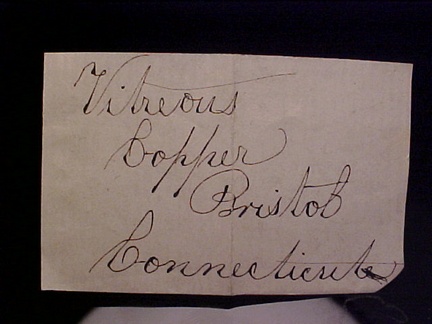 Vitreous
Copper
Bristol
Connecticut